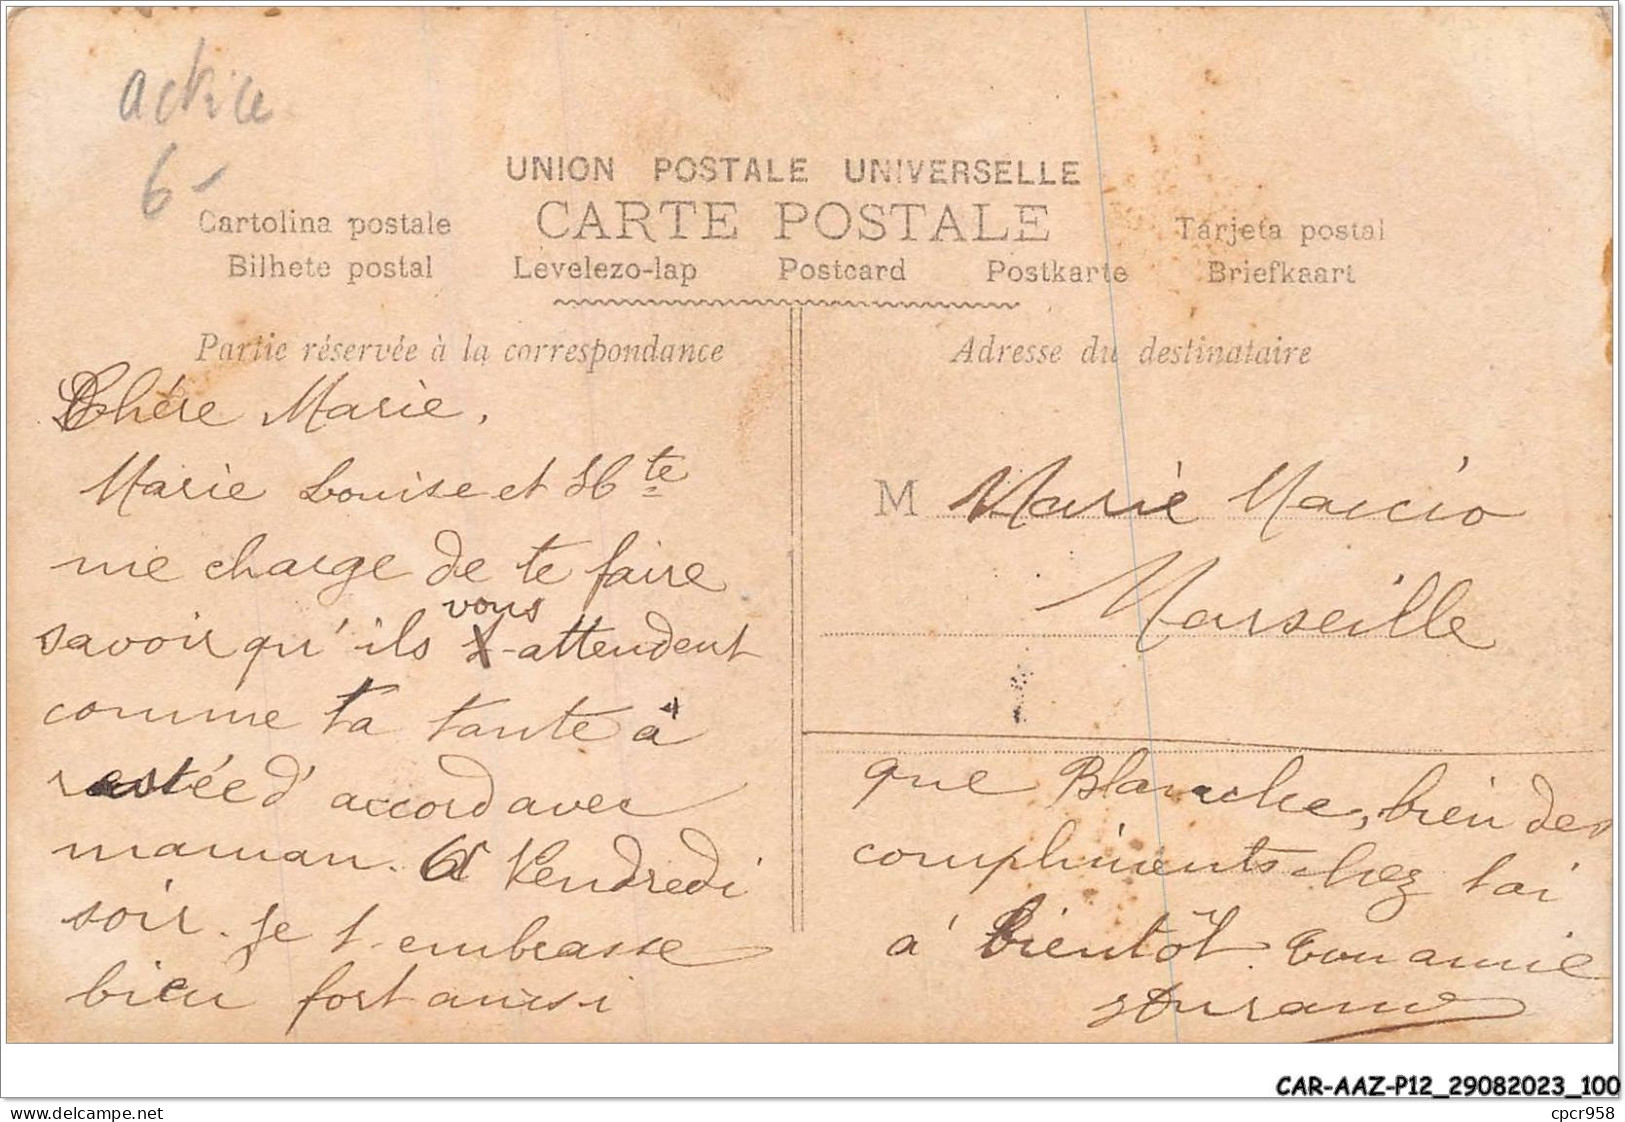 actrice
6-
UNION POSTALE UNIVERSELLE
CARTE POSTALE
Cartolina postale
Tarjeta postal
Bilhete postal Levelezo-lap Postcard Postkarte Briefkaart
Partie réservée à la correspondance
Adresse du destinataire
Chére Marie,
Marie Louise et
me charge de te faire
vous
savoir qu'ils t-attendent
comme ta tante à
restée d'accord avec
maman. a Vendredi
soir. Je t-embrasse
bien fort ainsi
M Marie Marcio
Marseille
que Blanche, bien des
compliments chez toi
a' bientôt. ton amie